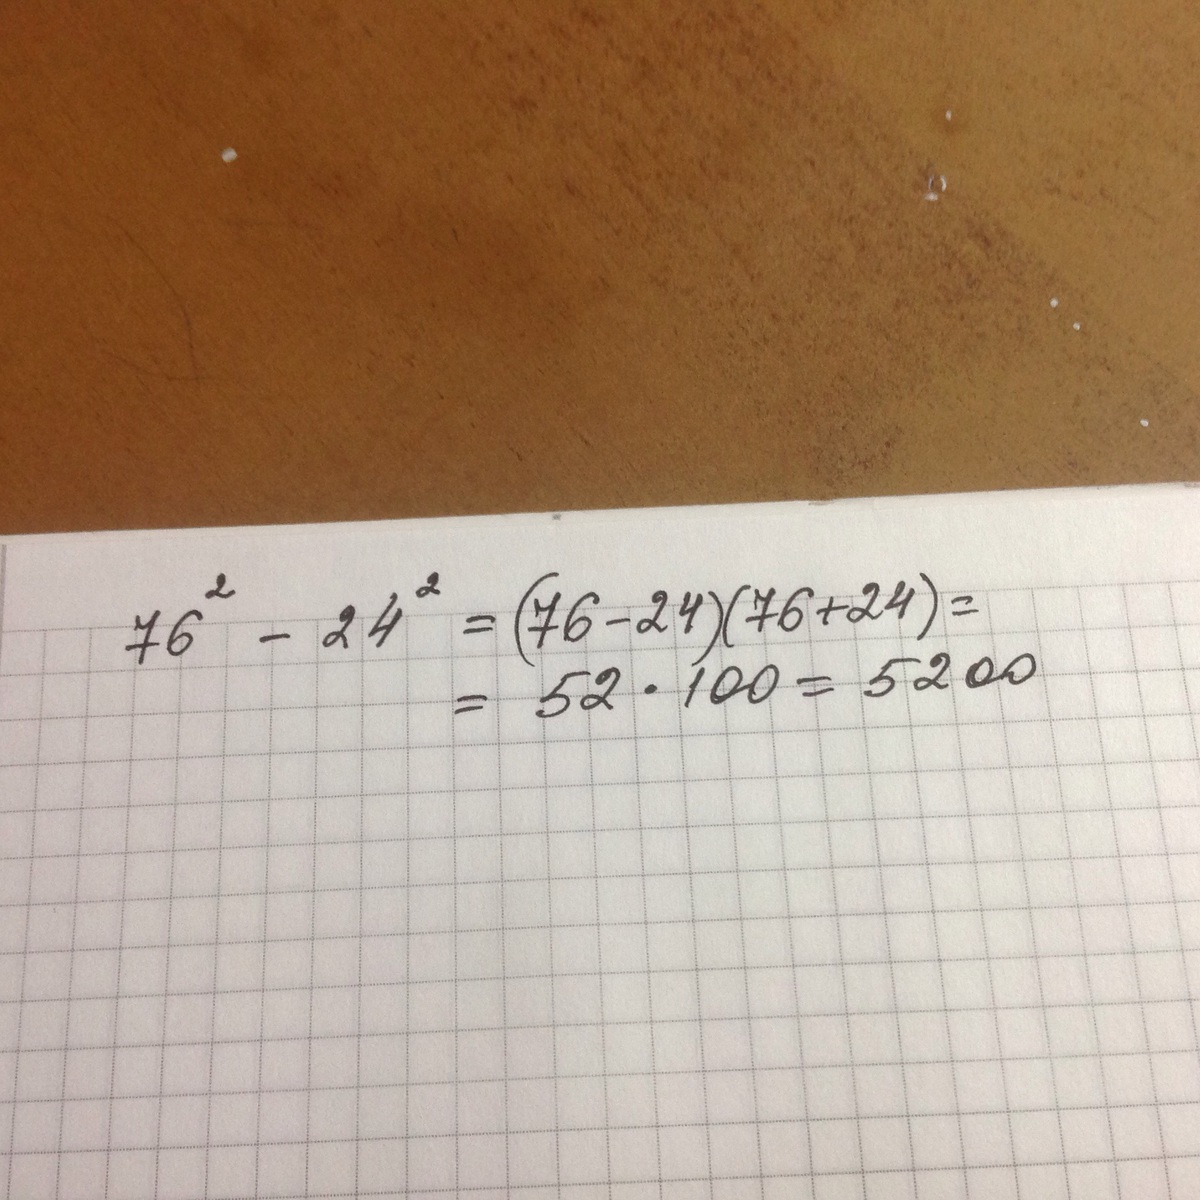 76² - 24² = (76-24)(76+24) =
= 52 · 100 = 5200